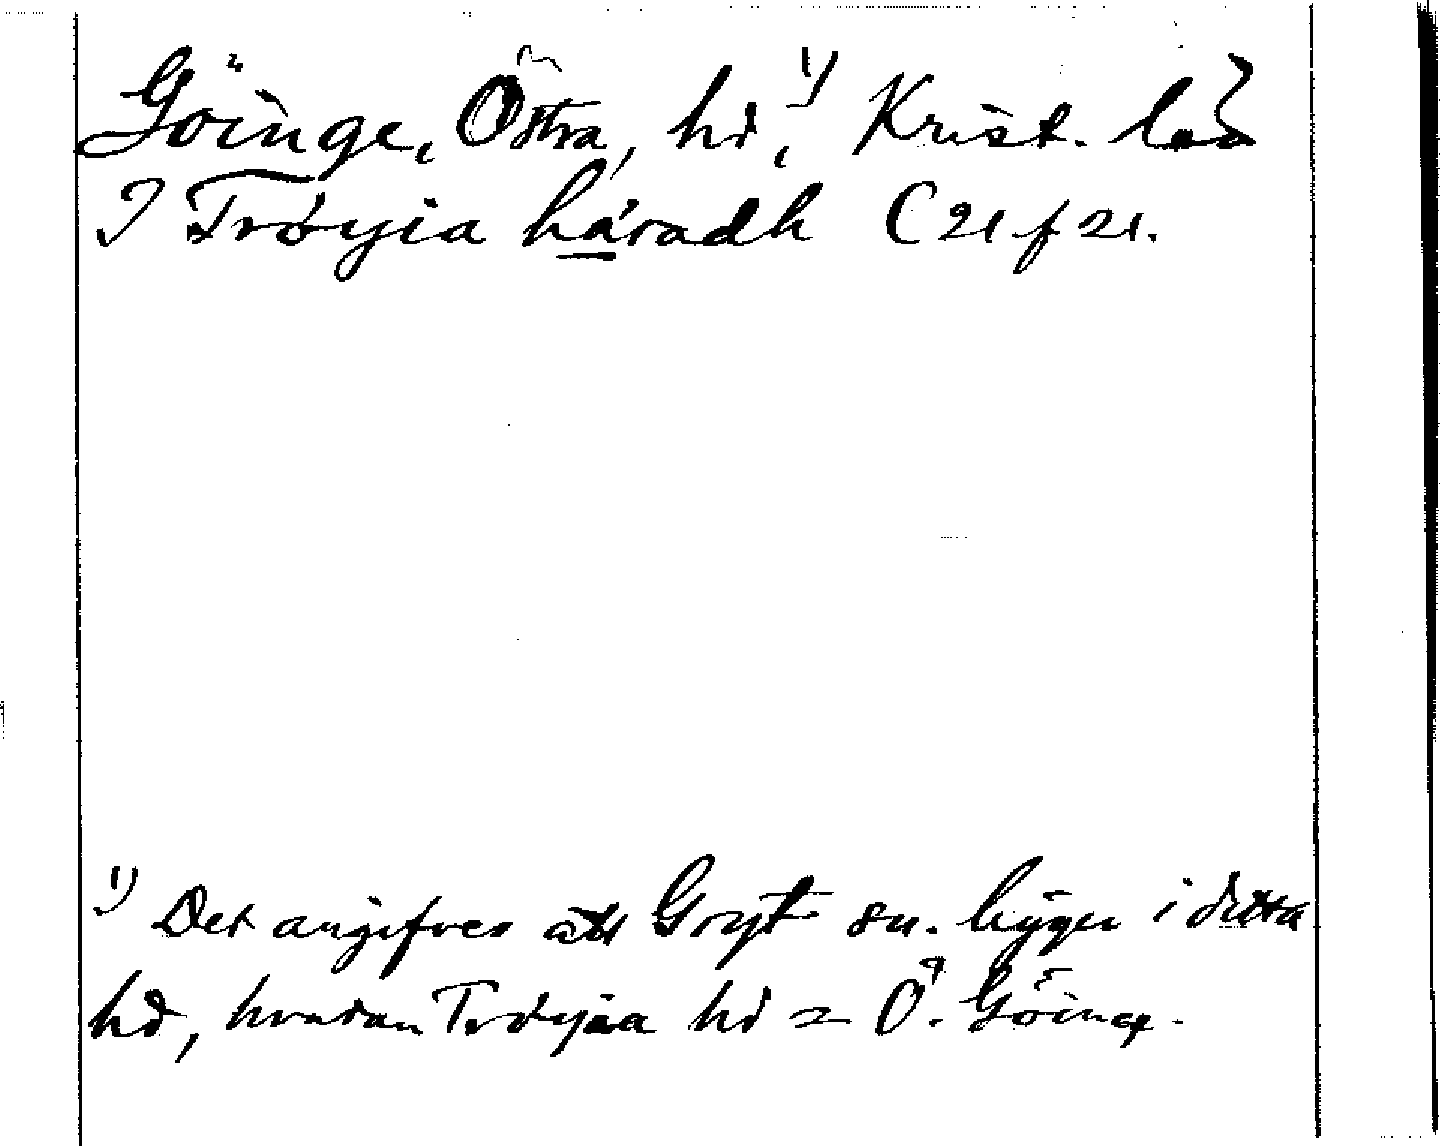 Göinge, Östra, hd,¹⁾ Krist. län
I Tröyia háradh C 21 f 21.
¹⁾ Det angifves att Gryt sn. ligger i detta
hd, hvadan Tröyia hd = Ö. Göinge.